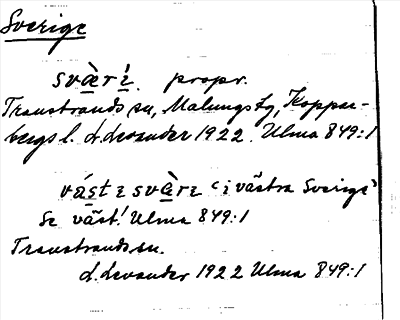 Sverige
svæ̀rí. propr.
Transtrands sn, Malungs tg, Koppar-
bergs l. d. Levander 1922. Ulma 849:1
väst i svæ̀ri 'i västra Sverige'
Se väst! Ulma 849:1
Transtrands sn.
d. Levander 1922 Ulma 849:1